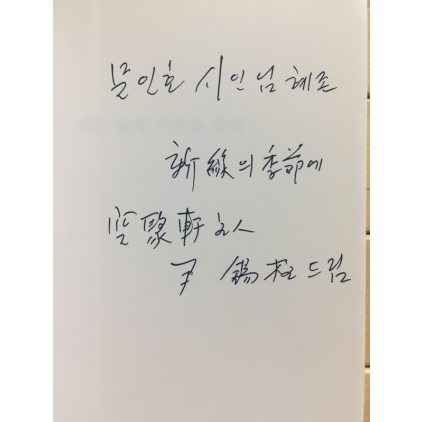 문인호 시인님 혜존
新綠의 季節에
聚軒 主人
尹 錫柱 드림